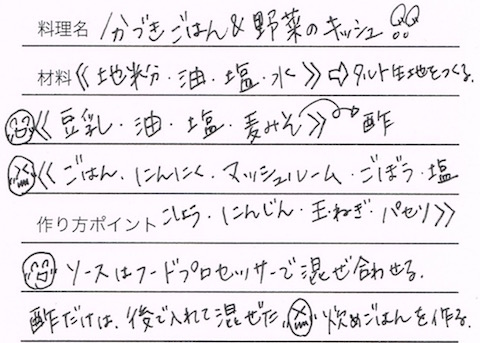 料理名 かづきごはん&野菜のキッシュ!!
材料《地粉・油・塩・水》⇨タルト生地をつくる.
《豆乳・油・塩・麦みそ》酢
《ごはん・にんにく・マッシュルーム・ごぼう・塩
作り方ポイント こしょう・にんじん・玉ねぎ・パセリ》
ソースはフードプロセッサーで混ぜ合わせる.
酢だけは、後で入れて混ぜた。炊めごはんを作る.